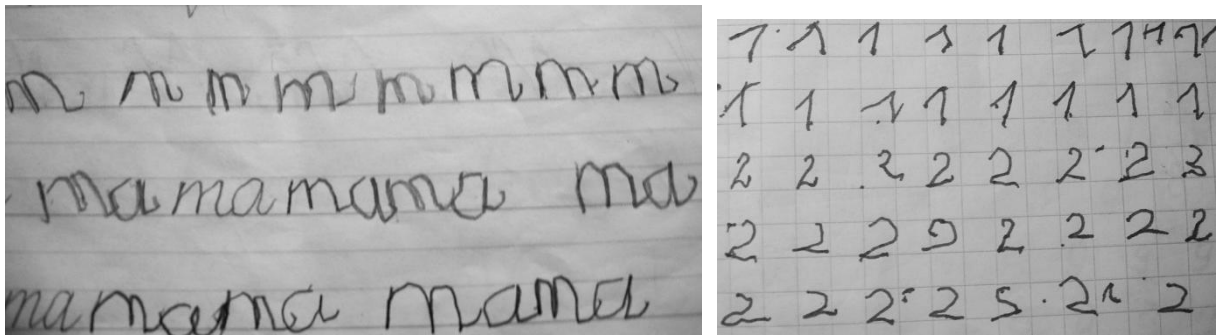 m m m m m m m m
ma ma mama ma
ma mama mama
1 1 1 1 1 1 1 1 1
1 1 1 1 1 1 1 1
2 2 2 2 2 2 2 2
2 2 2 2 2 2 2 2
2 2 2 2 2 2